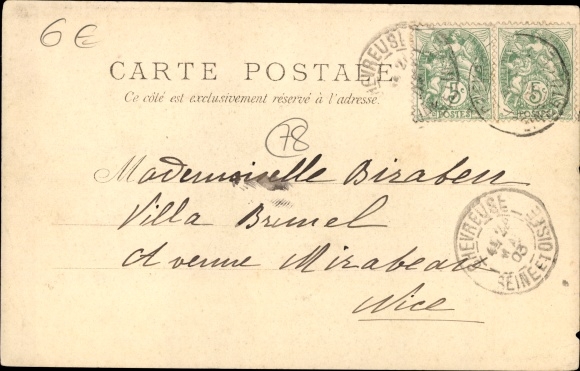 6€
CARTE POSTALE
Ce côté est exclusivement réservé à l'adresse.
78
5 5
POSTES
Mademoiselle Biraben
Villa Brunel
Avenue Mirabeau
Nice
CHEVREUSE
03
SEINE ET OISE
CHEVREUSE